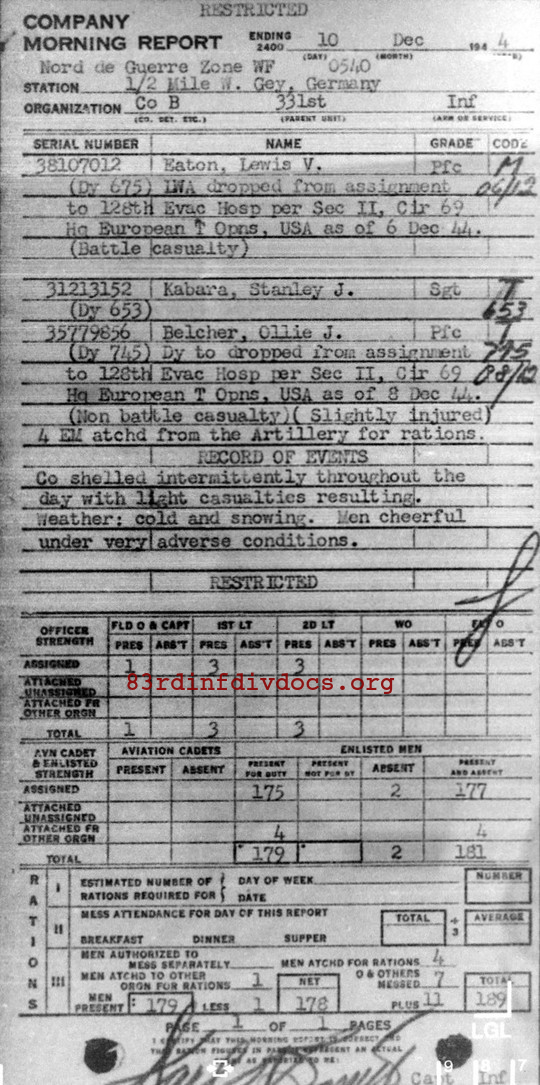 RESTRICTED
COMPANY
MORNING REPORT ENDING 2400 10 Dec 194 4
(DAY) (MONTH)
Nord de Guerre Zone WF 0540
STATION 1/2 Mile W. Gey, Germany
ORGANIZATION Co B 331st Inf
(CO. DET. ETC.) (PARENT UNIT) (ARM OR SERVICE)
SERIAL NUMBER NAME GRADE CODE
38107012 Eaton, Lewis V. Pfc M
(Dy 675) LWA dropped from assignment 06/12
to 128th Evac Hosp per Sec II, Cir 69
Hq European T Opns, USA as of 6 Dec 44.
(Battle casualty)
31213152 Kabara, Stanley J. Sgt
(Dy 653) 653
35779856 Belcher, Ollie J. Pfc
(Dy 745) Dy to dropped from assignment 745
to 128th Evac Hosp per Sec II, Cir 69 08/12
Hq European T Opns, USA as of 8 Dec 44.
(Non battle casualty)( Slightly injured)
4 EM atchd from the Artillery for rations.
RECORD OF EVENTS
Co shelled intermittently throughout the
day with light casualties resulting.
Weather: cold and snowing. Men cheerful
under very adverse conditions.
RESTRICTED
OFFICER STRENGTH FLD O & CAPT 1ST LT 2D LT WO FLT O
PRES ABS'T PRES ABS'T PRES ABS'T PRES ABS'T PRES ABS'T
ASSIGNED 1 3 3
ATTACHED UNASSIGNED
83rdinfdivdocs.org
ATTACHED FR OTHER ORGN
TOTAL 1 3 3
AVN CADET & ENLISTED STRENGTH AVIATION CADETS ENLISTED MEN
PRESENT ABSENT PRESENT FOR DUTY PRESENT NOT FOR DY ABSENT PRESENT AND ABSENT
ASSIGNED 175 2 177
ATTACHED UNASSIGNED
ATTACHED FR OTHER ORGN 4 4
TOTAL 179 2 181
RATIONS
I ESTIMATED NUMBER OF RATIONS REQUIRED FOR { DAY OF WEEK DATE NUMBER
II MESS ATTENDANCE FOR DAY OF THIS REPORT TOTAL ÷ 3 AVERAGE
BREAKFAST DINNER SUPPER
III MEN AUTHORIZED TO MESS SEPARATELY MEN ATCHD FOR RATIONS 4
MEN ATCHD TO OTHER ORGN FOR RATIONS 1 NET O & OTHERS MESSED 7 TOTAL
MEN PRESENT 179 LESS 1 178 PLUS 11 189
PAGE 1 OF 1 PAGES
I CERTIFY THAT THIS MORNING REPORT IS CORRECT AND
THAT RATION FIGURES IN PART III REPRESENT AN ACTUAL
LGL
Capt Inf
19 18 17